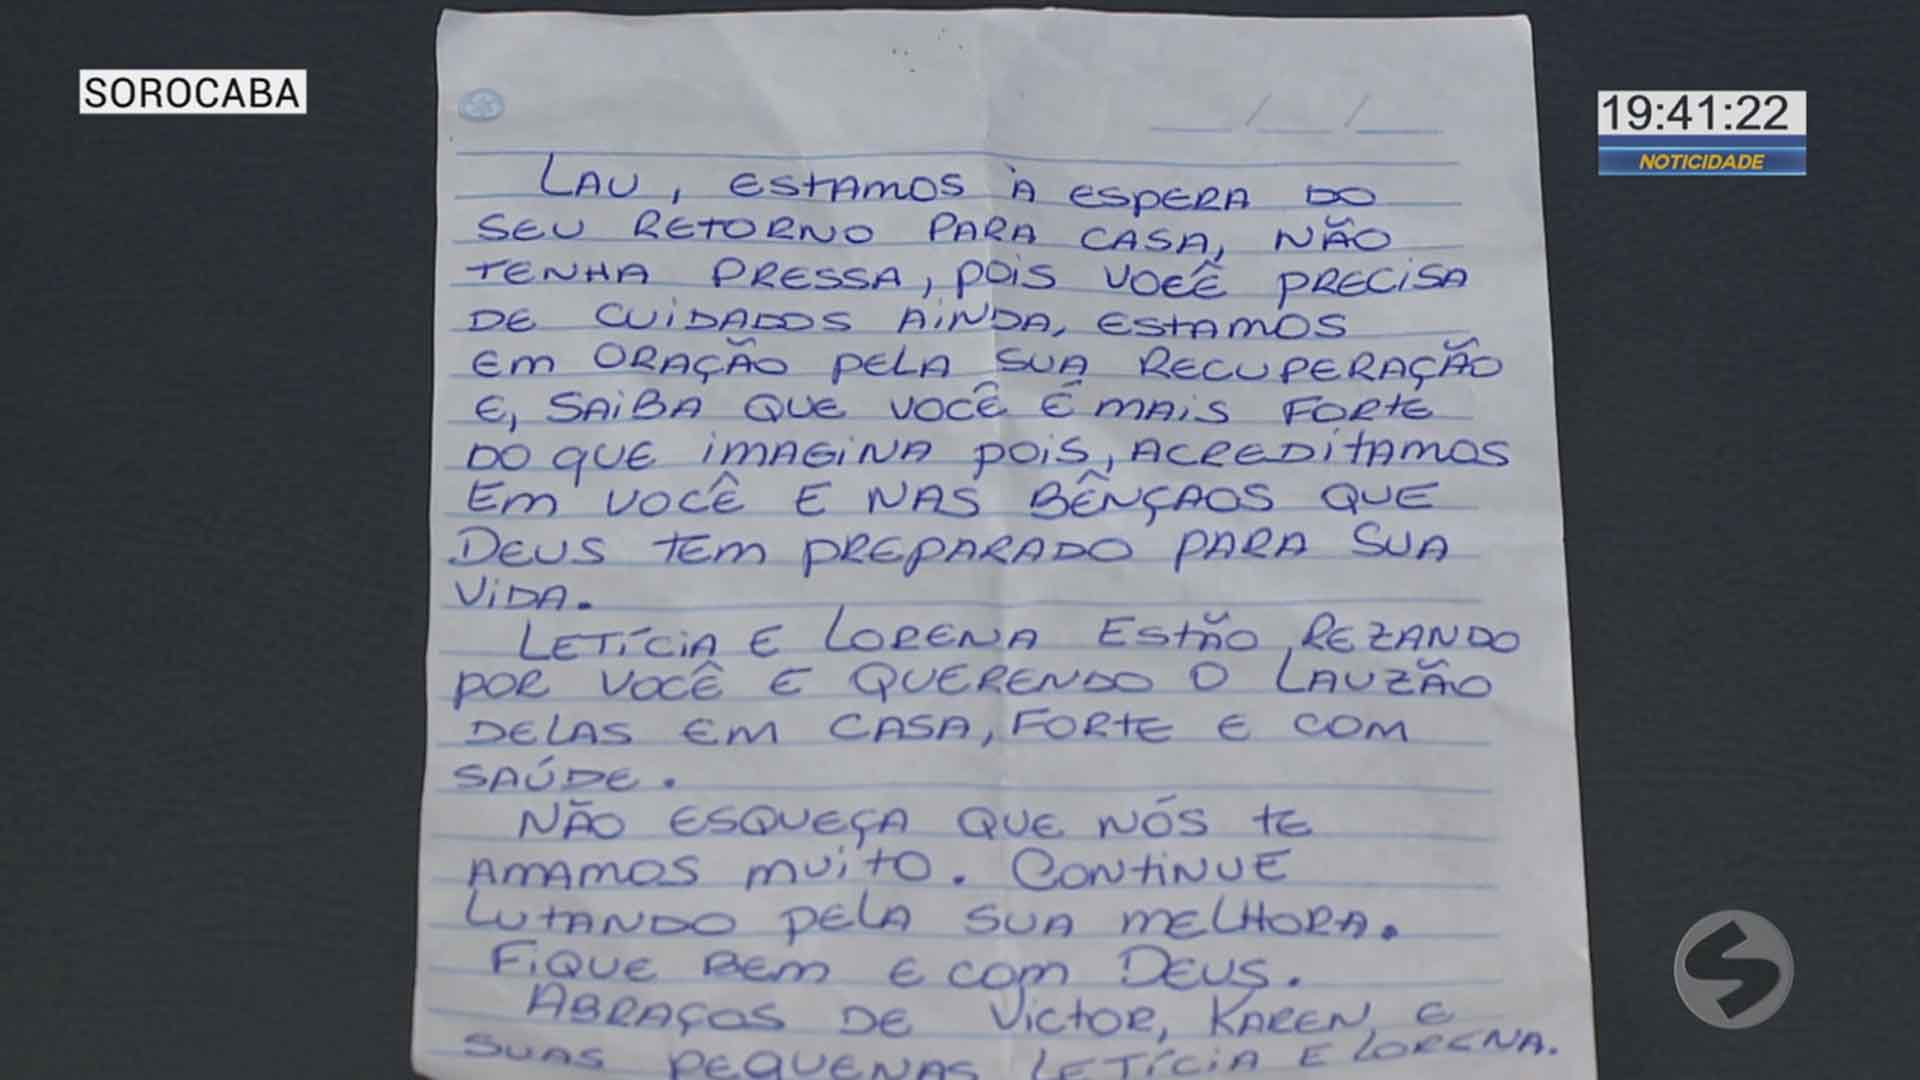 SOROCABA
19:41:22
NOTICIDADE
LAU, ESTAMOS À ESPERA DO
SEU RETORNO PARA CASA, NÃO
TENHA PRESSA, POIS VOCÊ PRECISA
DE CUIDADOS AINDA, ESTAMOS
EM ORAÇÃO PELA SUA RECUPERAÇÃO
E, SAIBA QUE VOCÊ É MAIS FORTE
DO QUE IMAGINA POIS, ACREDITAMOS
EM VOCÊ E NAS BÊNÇAOS QUE
DEUS TEM PREPARADO PARA SUA
VIDA.
LETÍCIA E LORENA ESTÃO REZANDO
POR VOCÊ E QUERENDO O LAUZÃO
DELAS EM CASA, FORTE E COM
SAÚDE.
NÃO ESQUEÇA QUE NÓS TE
AMAMOS MUITO. CONTINUE
LUTANDO PELA SUA MELHORA.
FIQUE BEM E COM DEUS.
ABRAÇOS DE VICTOR, KAREN E
SUAS PEQUENAS LETÍCIA E LORENA.